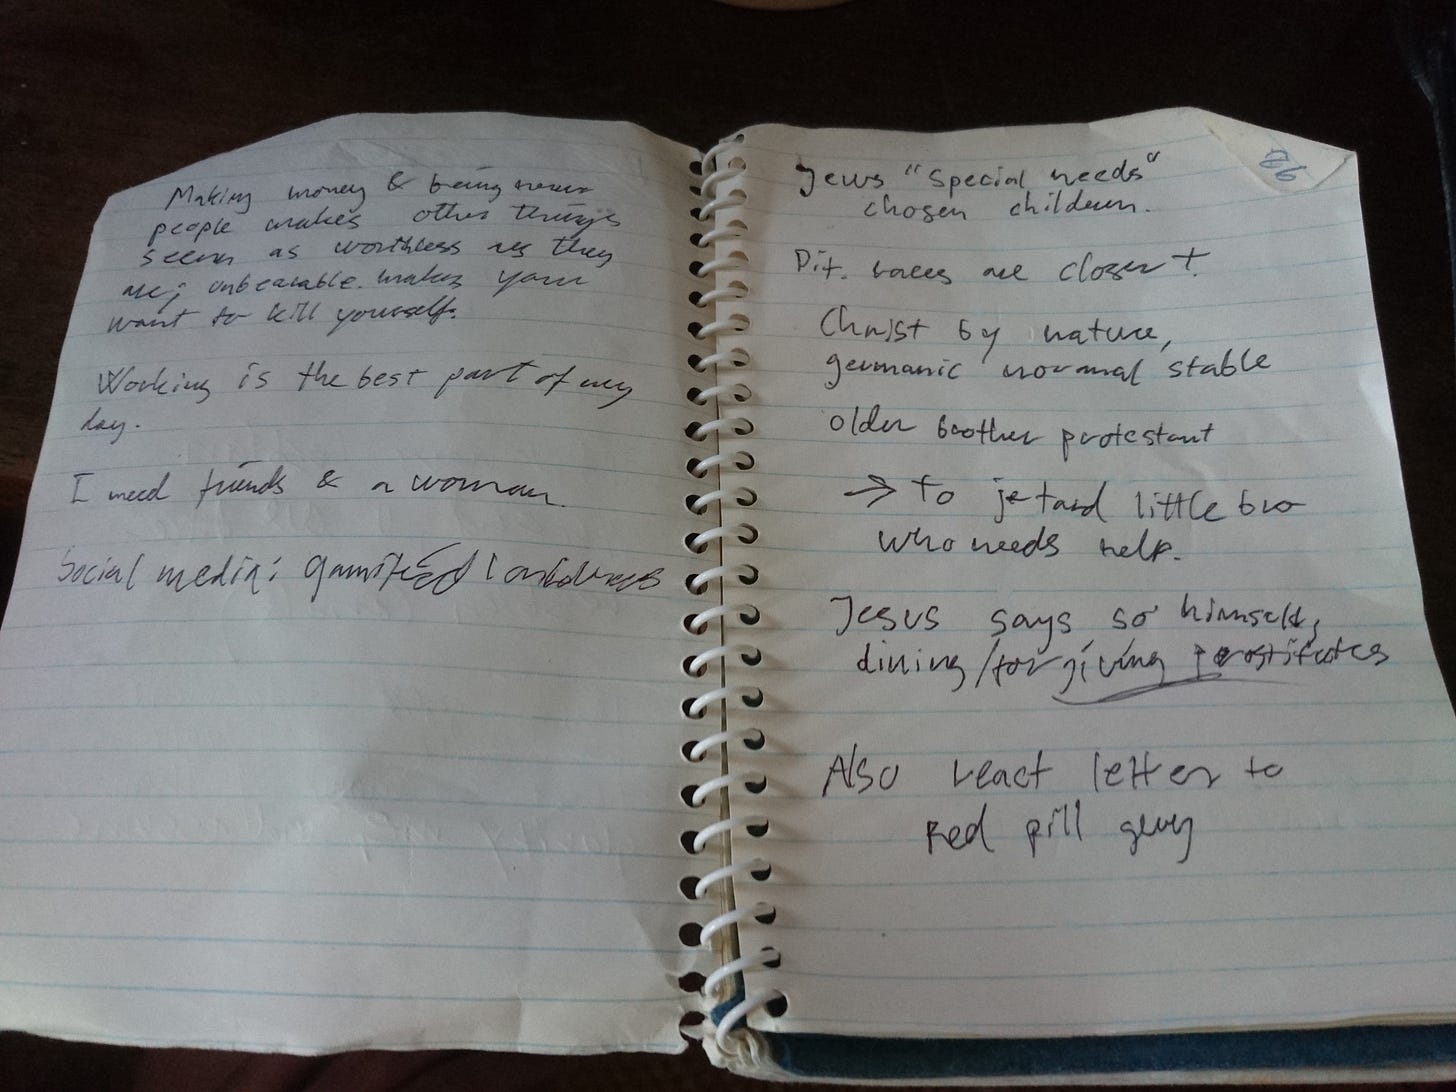 Making money & being
people makes other things
seem as worthless as they
are; unbearable. makes you
want to kill yourself.
Working is the best part of my
day.
I need friends & a woman.
Social media: gamified
Jews "special needs"
chosen children.
Dif. races are closer t.
Christ by nature,
germanic normal stable
older brother protestant
→ to little bro
who needs help.
Jesus says so himself,
dining/forgiving prostitutes
Also react letter to
Red pill guy